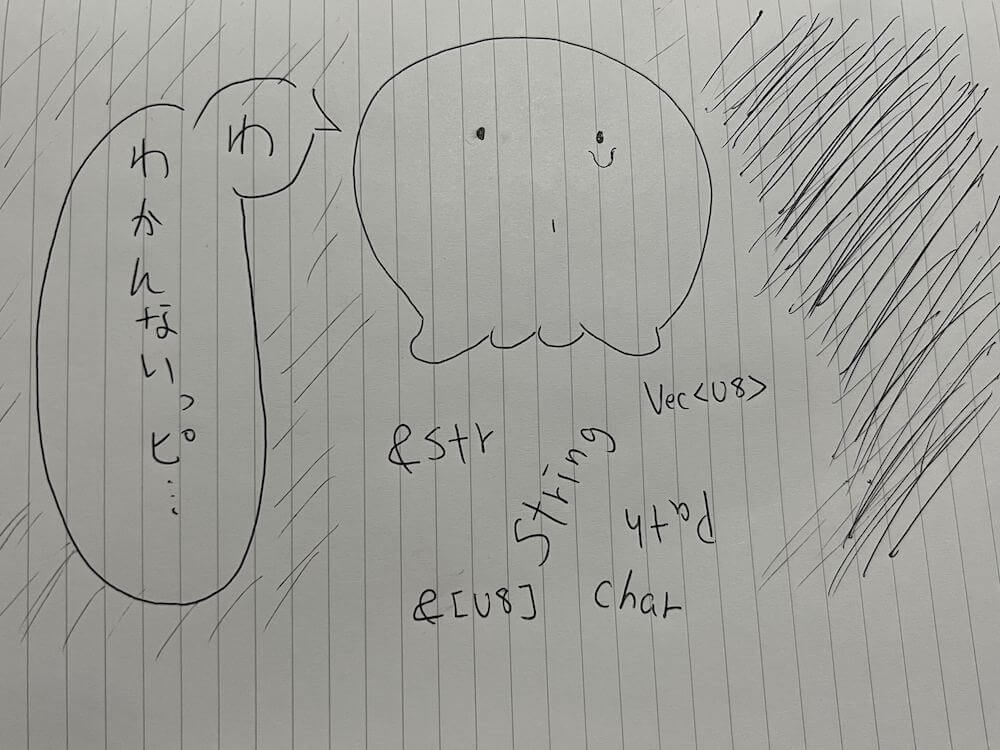 わ
わかんないっピ…
Vec<U8>
&str
String
Path
&[U8]
char